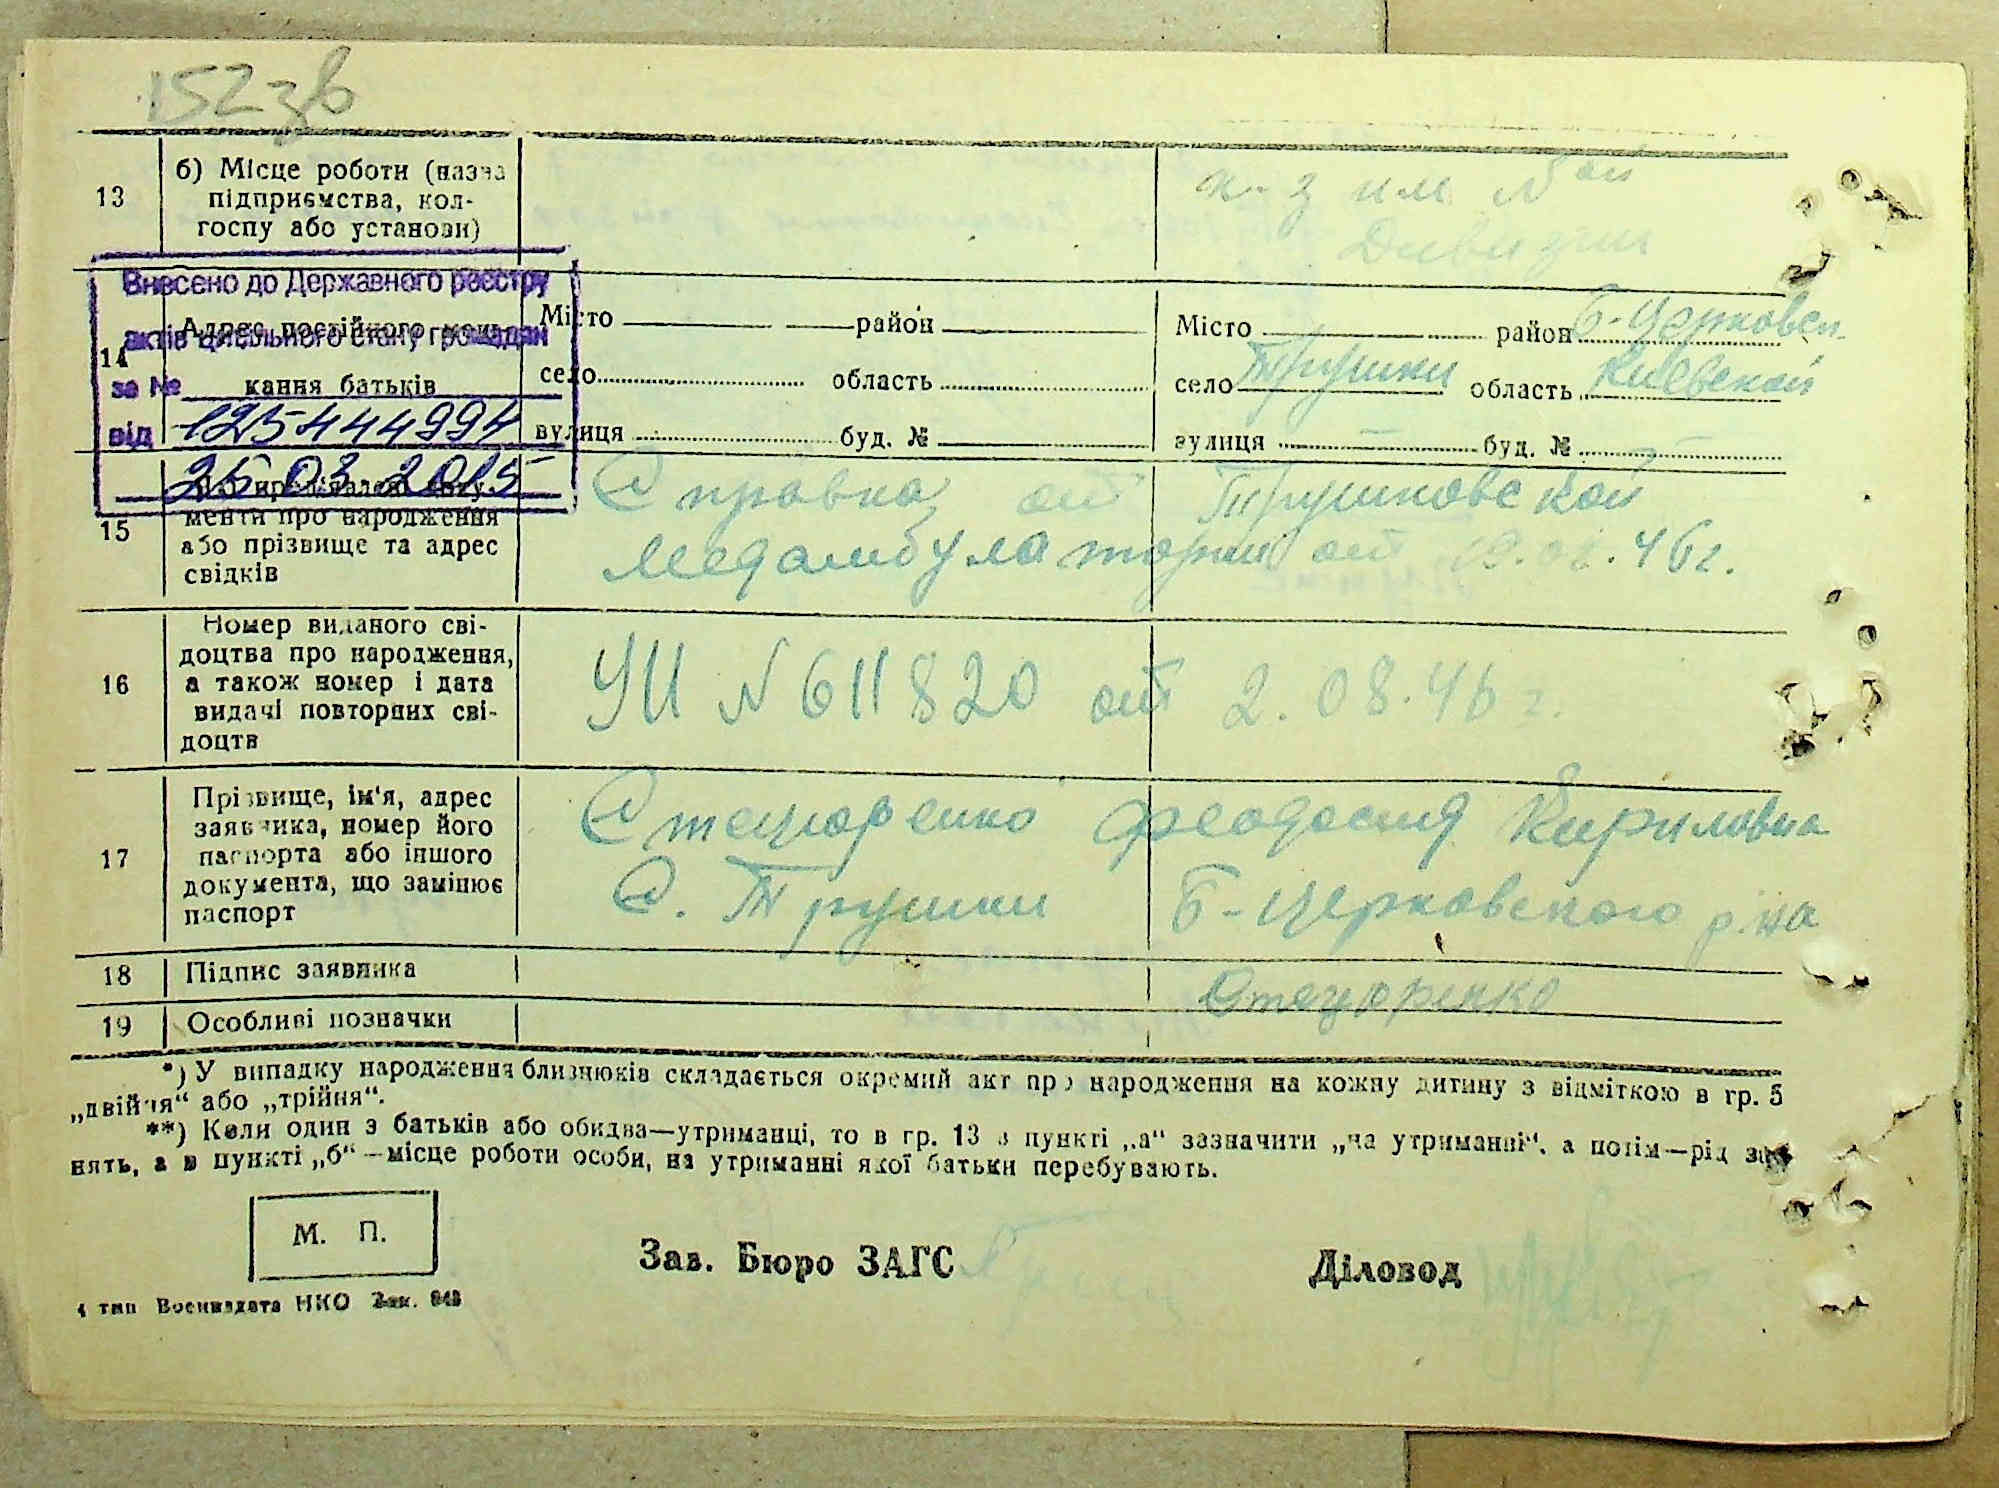 152зв
13
б) Місце роботи (назва
підприємства, кол-
госпу або установи)
к-з им
Дивизии
Внесено до Державного реєстру
актів цивільного стану громадян
за №
125444994
від
25 03 2015
14
Адрес постійного
кання батьків
Місто район
село область
вулиця буд. №
Місто район Б-Церковск.
село Трушки область Киевской
вулиця — буд. № —
15
менти про народження
або прізвище та адрес
свідків
Справка от Трушковской
Медамбулатории от 46г.
16
Номер виданого сві-
доцтва про народження,
а також номер і дата
видачі повторних сві-
доцтв
УИ N 611820 от 2.08.46 г.
17
Прізвище, ім'я, адрес
заявника, номер його
паспорта або іншого
документа, що замінює
паспорт
Стецюренко Феодосия Кириловна
С. Трушки Б-Церковского р-на
18
Підпис заявника
Стецюренко
19
Особливі позначки
*) У випадку народження близнюків складається окремий акт про народження на кожну дитину з відміткою в гр. 5
„двійня“ або „трійня“.
**) Коли один з батьків або обидва—утриманці, то в гр. 13 в пункті „а“ зазначити „на утриманні“, а потім—рід за-
нять, а в пункті „б“—місце роботи особи, на утриманні якої батьки перебувають.
М. П.
Зав. Бюро ЗАГС
Діловод
4 тип Воениздата НКО Зак. 843